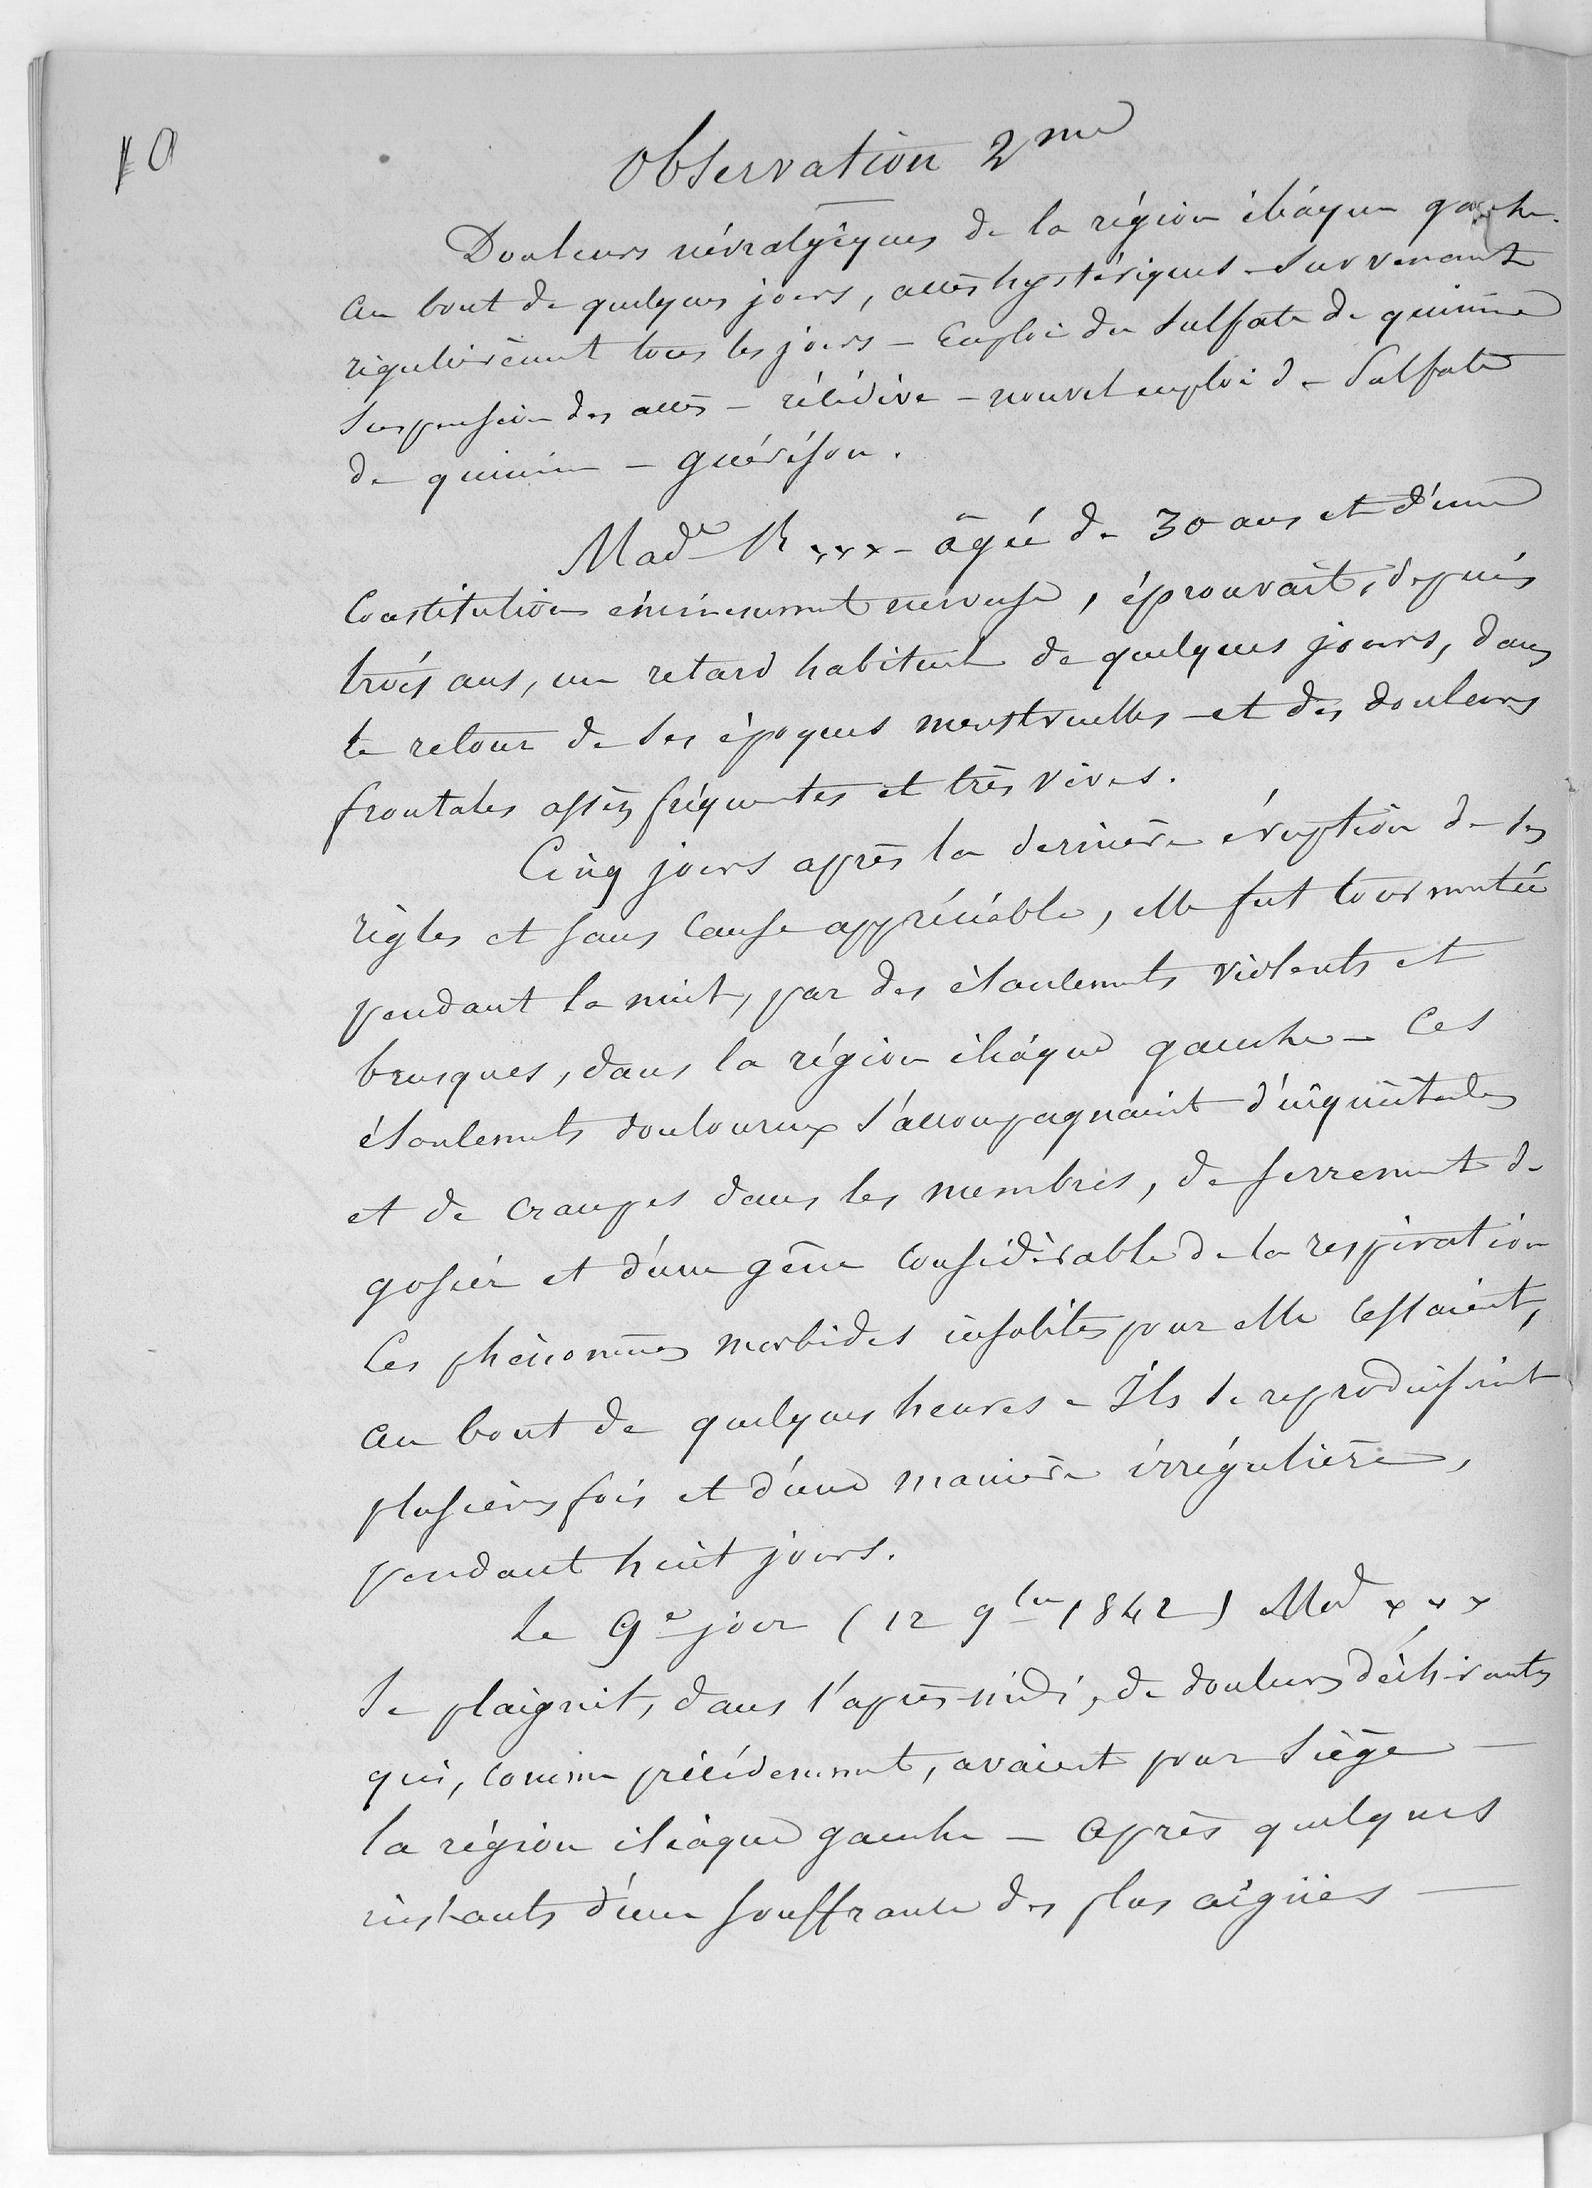 10
Observation 2me
Douleurs névralgiques de la région iliaque gauche.
Au bout de quelques jours, accès hystériques survenant
régulièrement tous les jours – Emploi du sulfate de quinine
suspension des accès – récidive – nouvel emploi de sulfate
de quinine – guérison.
Made R xxx – âgée de 30 ans et d'une
constitution éminemment nerveuse, éprouvait, depuis
trois ans, un retard habituel de quelques jours, dans
le retour de ses époques menstruelles – et des douleurs
frontales assez fréquentes et très vives.
Cinq jours après la dernière éruption de ses
règles et sans cause appréciable, elle fut tourmentée
pendant la nuit, par des élancements violents et
brusques, dans la région iliaque gauche – Ces
élancements douloureux s'accompagnaient d'inquiétudes
et de crampes dans les membres, de serrement de
gosier et d'une gêne considérable de la respiration
Ces phénomènes morbides insolites pour elle cessaient,
au bout de quelques heures – Ils se reproduisirent
plusieurs fois et d'une manière irrégulière,
pendant huit jours.
Le 9e jour (12 9bre 1842) Mad xxx
se plaignit, dans l'après-midi, de douleurs déchirantes
qui, comme précédemment, avaient pour siège –
la région iliaque gauche – après quelques
instants d'une souffrance des plus aigües –